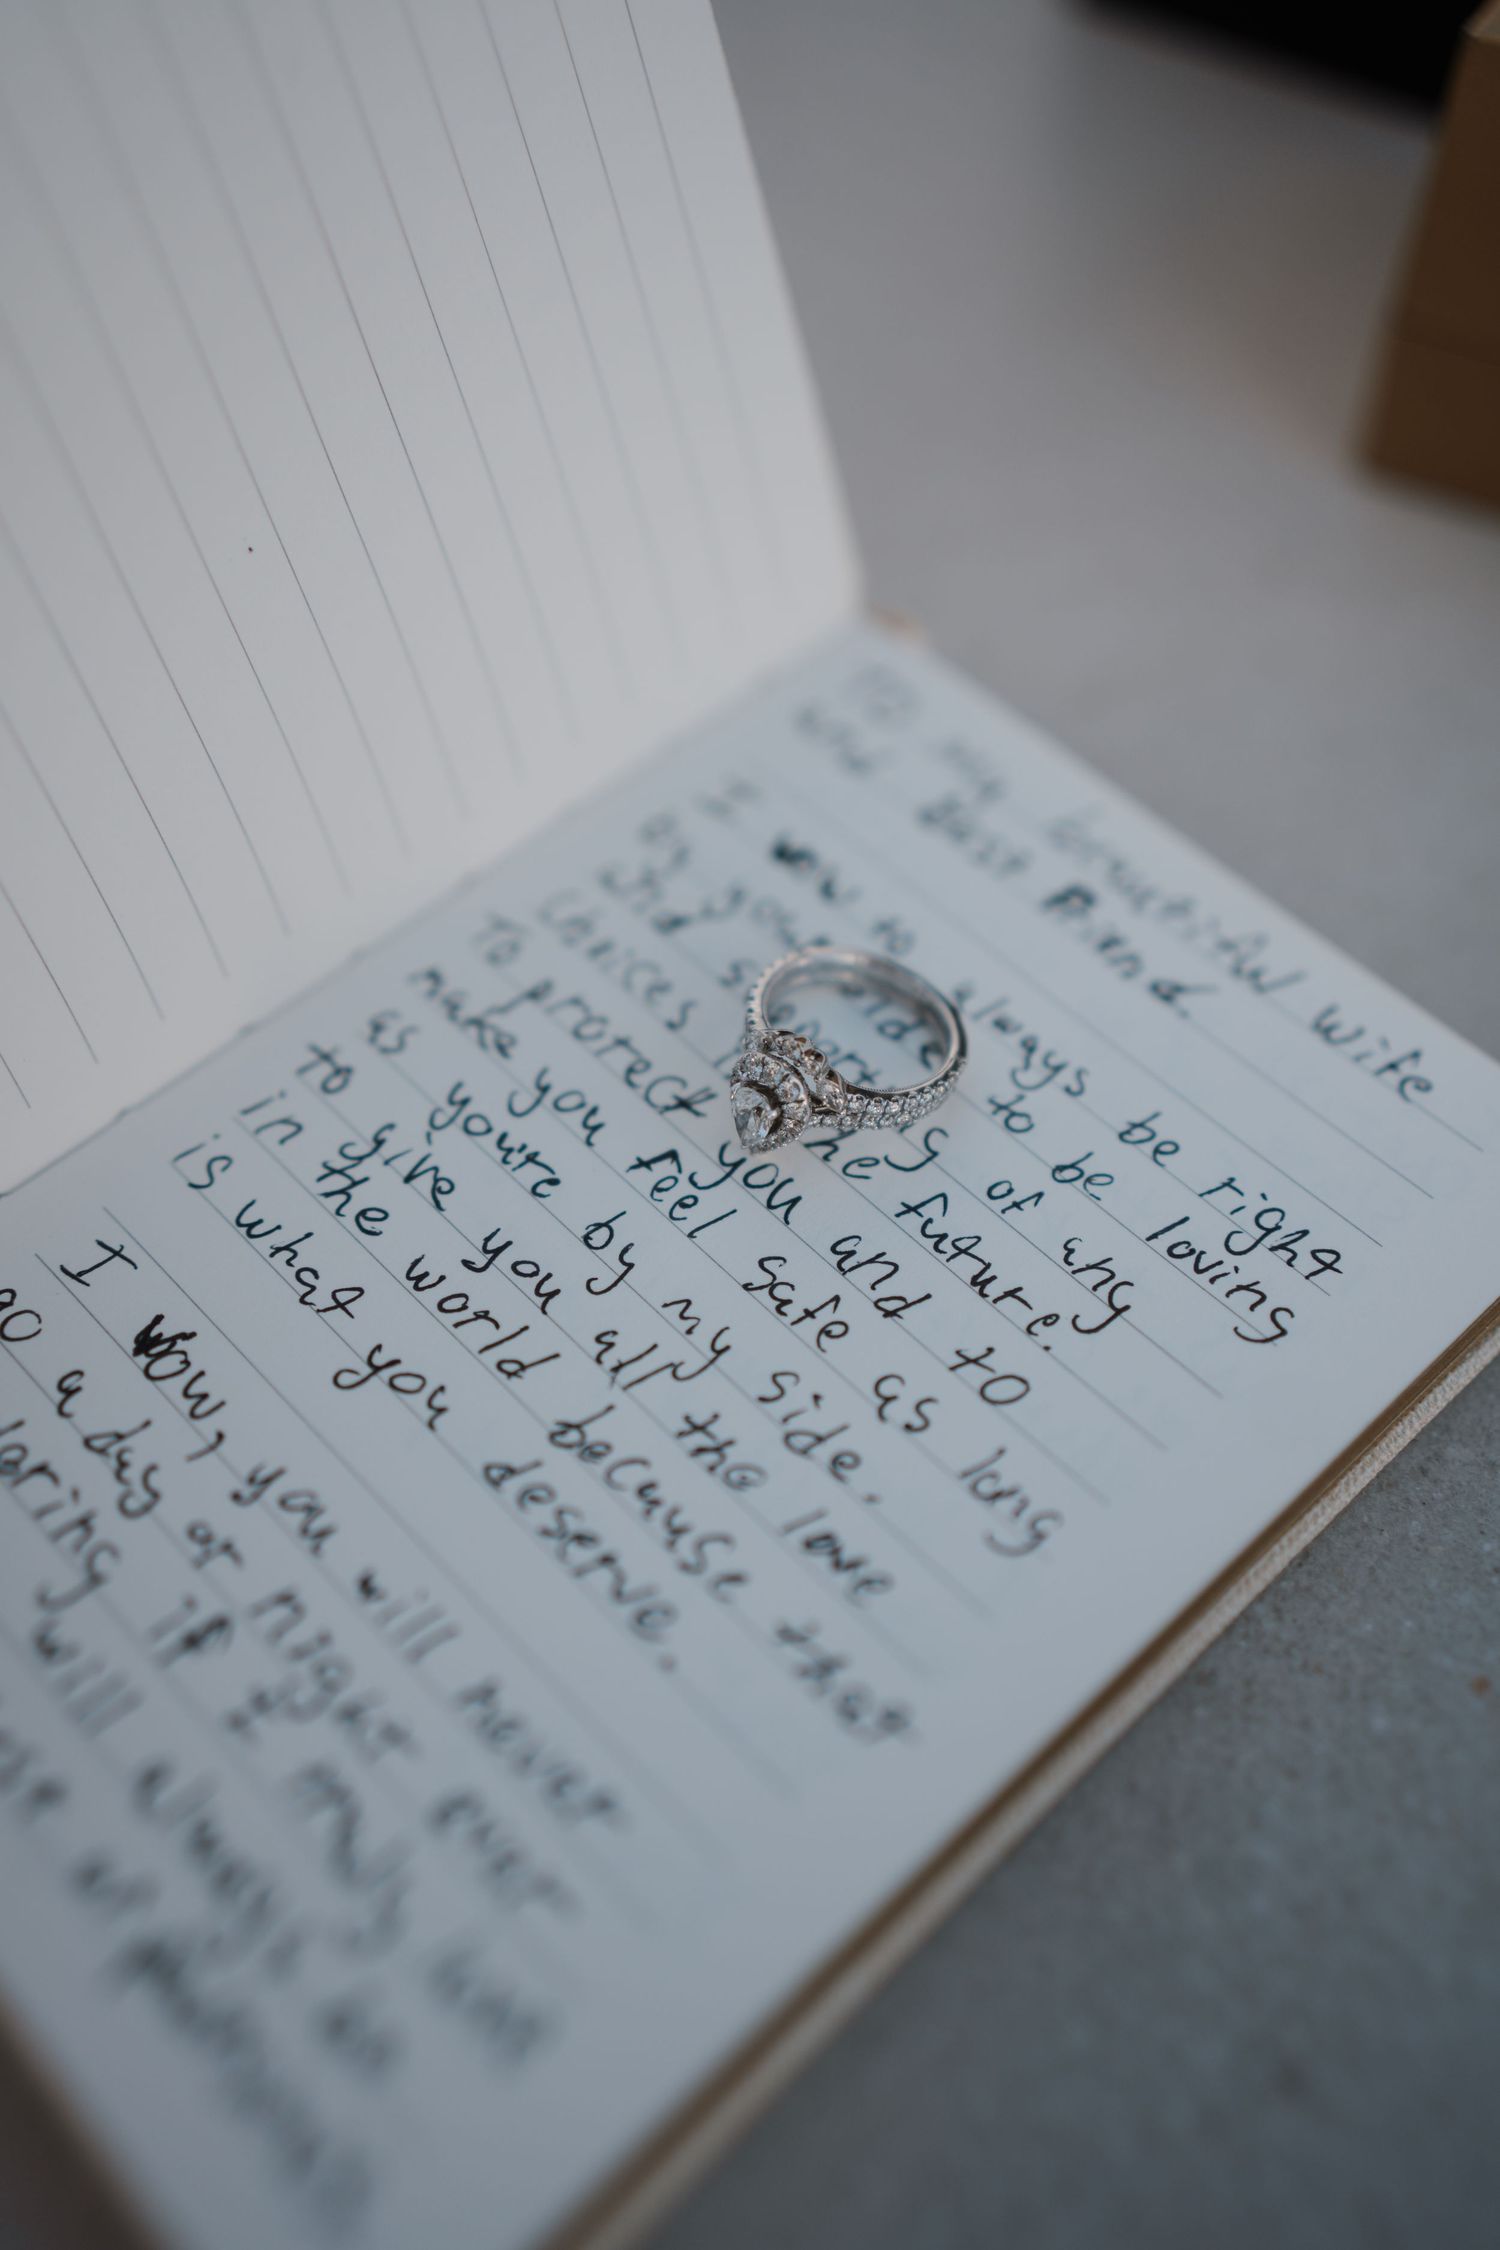 To my beautiful wife
and Best Friend.
I vow to always be right
by your side to be loving
and support of any
choices in the future.
To protect you and to
make you feel safe as long
as you're by my side.
to give you all the love
in the world because that
is what you deserve.
I vow, you will never
go a day or night ever
if I
will always